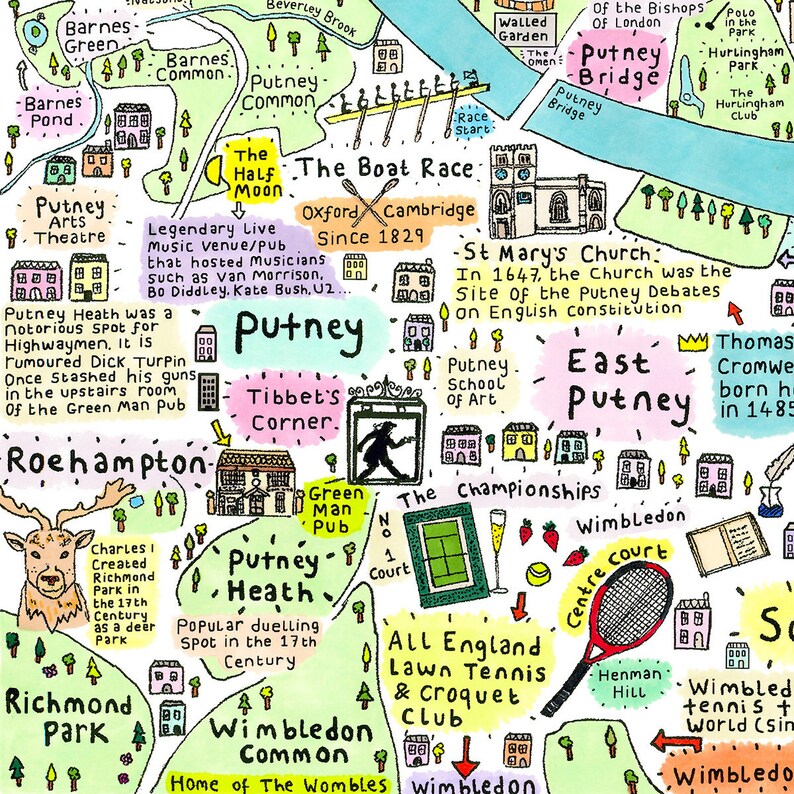 Beverley Brook
of the Bishops
of London
Walled
Garden
The
Omen
Putney
Bridge
Polo
in the
Park
Hurlingham
Park
The
Hurlingham
Club
Barnes
Green
Barnes
Common
Putney
Common
Barnes
Pond
Race
Start
Putney
Bridge
The
Half
Moon
The Boat Race
Oxford Cambridge
Since 1829
Putney
Arts
Theatre
Legendary Live
Music Venue/Pub
that hosted Musicians
such as Van Morrison,
Bo Diddley, Kate Bush, U2...
St Mary's Church:
In 1647, the Church was the
Site of the Putney Debates
on English Constitution
Putney Heath was a
notorious spot for
Highwaymen. It is
rumoured Dick Turpin
Once stashed his guns
in the upstairs room
of the Green Man Pub
Putney
Tibbet's
Corner
Putney
School
of Art
East
Putney
Thomas
Cromwe
born h
in 1485
Roehampton
Green
Man
Pub
The Championships
Wimbledon
No
1
Court
Centre Court
Charles I
Created
Richmond
Park in
the 17th
Century
as a deer
Park
Putney
Heath
Popular duelling
Spot in the 17th
Century
All England
Lawn Tennis
& Croquet
Club
Henman
Hill
So
Richmond
Park
Wimbledon
Common
Home of The Wombles
Wimbled
tennis t
World (sin
Wimbledon
Wimbledo